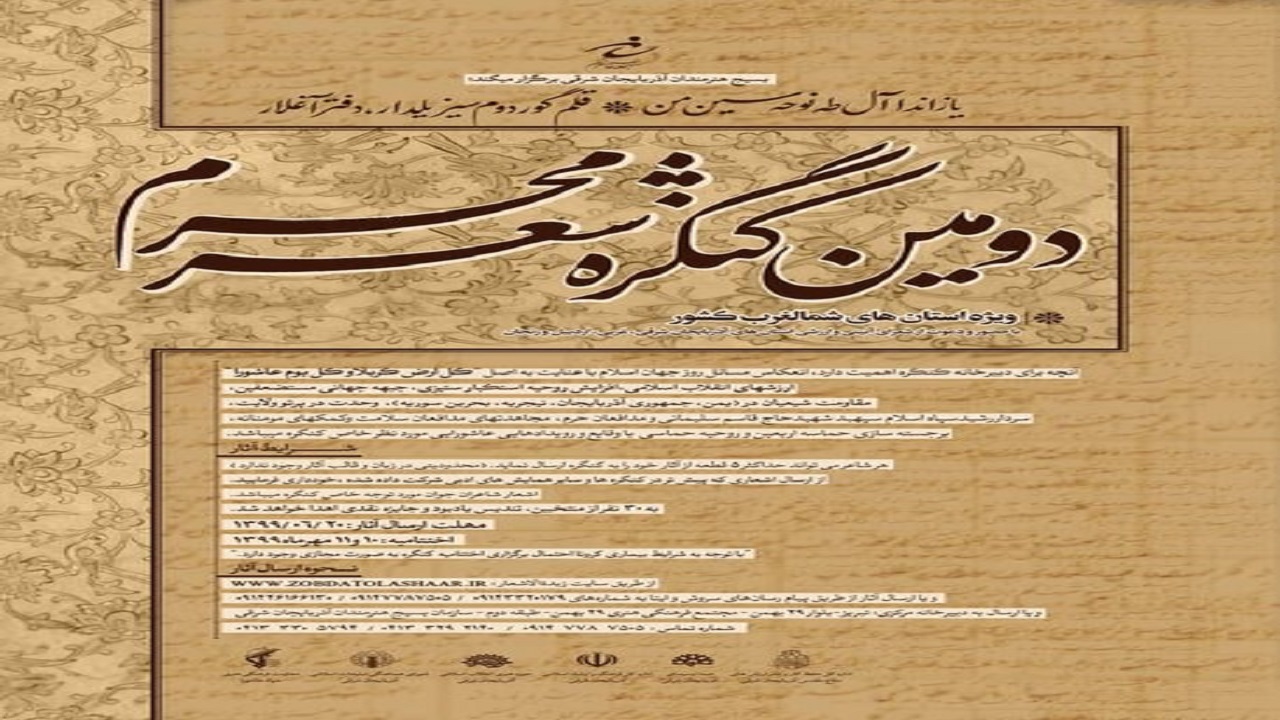 بسیج هنرمندان آذربایجان شرقی برگزار میکند؛
یازاندا آل طه نوحه سین من ❋ قلم گور دوم سیزیلدار، دفتر آغلار
دومین کنگره شعر محرم
ویژه استان های شمالغرب کشور
آنچه برای دبیرخانه کنگره اهمیت دارد، انعکاس مسائل روز جهان اسلام با عنایت به اصل "کل ارض کربلا و کل یوم عاشورا"
ارزشهای انقلاب اسلامی، افزایش روحیه استکبار ستیزی، جبهه جهانی مستضعفین،
مقاومت شیعیان در (یمن، جمهوری آذربایجان، نیجریه، بحرین سوریه)، وحدت در پرتو ولایت،
سردار رشید سپاه اسلام سپهبد شهید حاج قاسم سلیمانی و مدافعان حرم، مجاهدتهای مدافعان سلامت و کمکهای مومنانه،
برجسته سازی حماسه اربعین و روحیه حماسی با وقایع و رویدادهایی عاشورایی مورد نظر خاص کنگره میباشد.
شرایط آثار
هر شاعر می تواند حداکثر ۵ قطعه از آثار خود را به کنگره ارسال نماید. (محدودیتی در زبان و قالب آثار وجود ندارد)
از ارسال اشعاری که پیش تر در کنگره ها و سایر همایش های ادبی شرکت داده شده، خودداری فرمایید.
اشعار شاعران جوان مورد توجه خاص کنگره میباشد.
به ۳۰ نفر از منتخبین، تندیس یادبود و جایزه نقدی اهدا خواهد شد.
مهلت ارسال آثار: ۱۳۹۹/۰۶/۲۰
اختتامیه: ۱۰ و ۱۱ مهرماه ۱۳۹۹
"با توجه به شرایط بیماری کرونا احتمال برگزاری اختتامیه کنگره به صورت مجازی وجود دارد."
نحوه ارسال آثار
از طریق سایت زبدةالاشعار: WWW.ZOBDATOLASHAAR.IR
و یا ارسال آثار از طریق پیام رسان های سروش و ایتا به شماره های
و یا ارسال به دبیرخانه مرکزی: تبریز- بلوار ۲۹ بهمن- مجتمع فرهنگی هنری ۲۹ بهمن- طبقه دوم - سازمان بسیج هنرمندان آذربایجان شرقی
شماره تماس: ۰۹۱۴ ۷۷۸ ۷۵۰۵ /